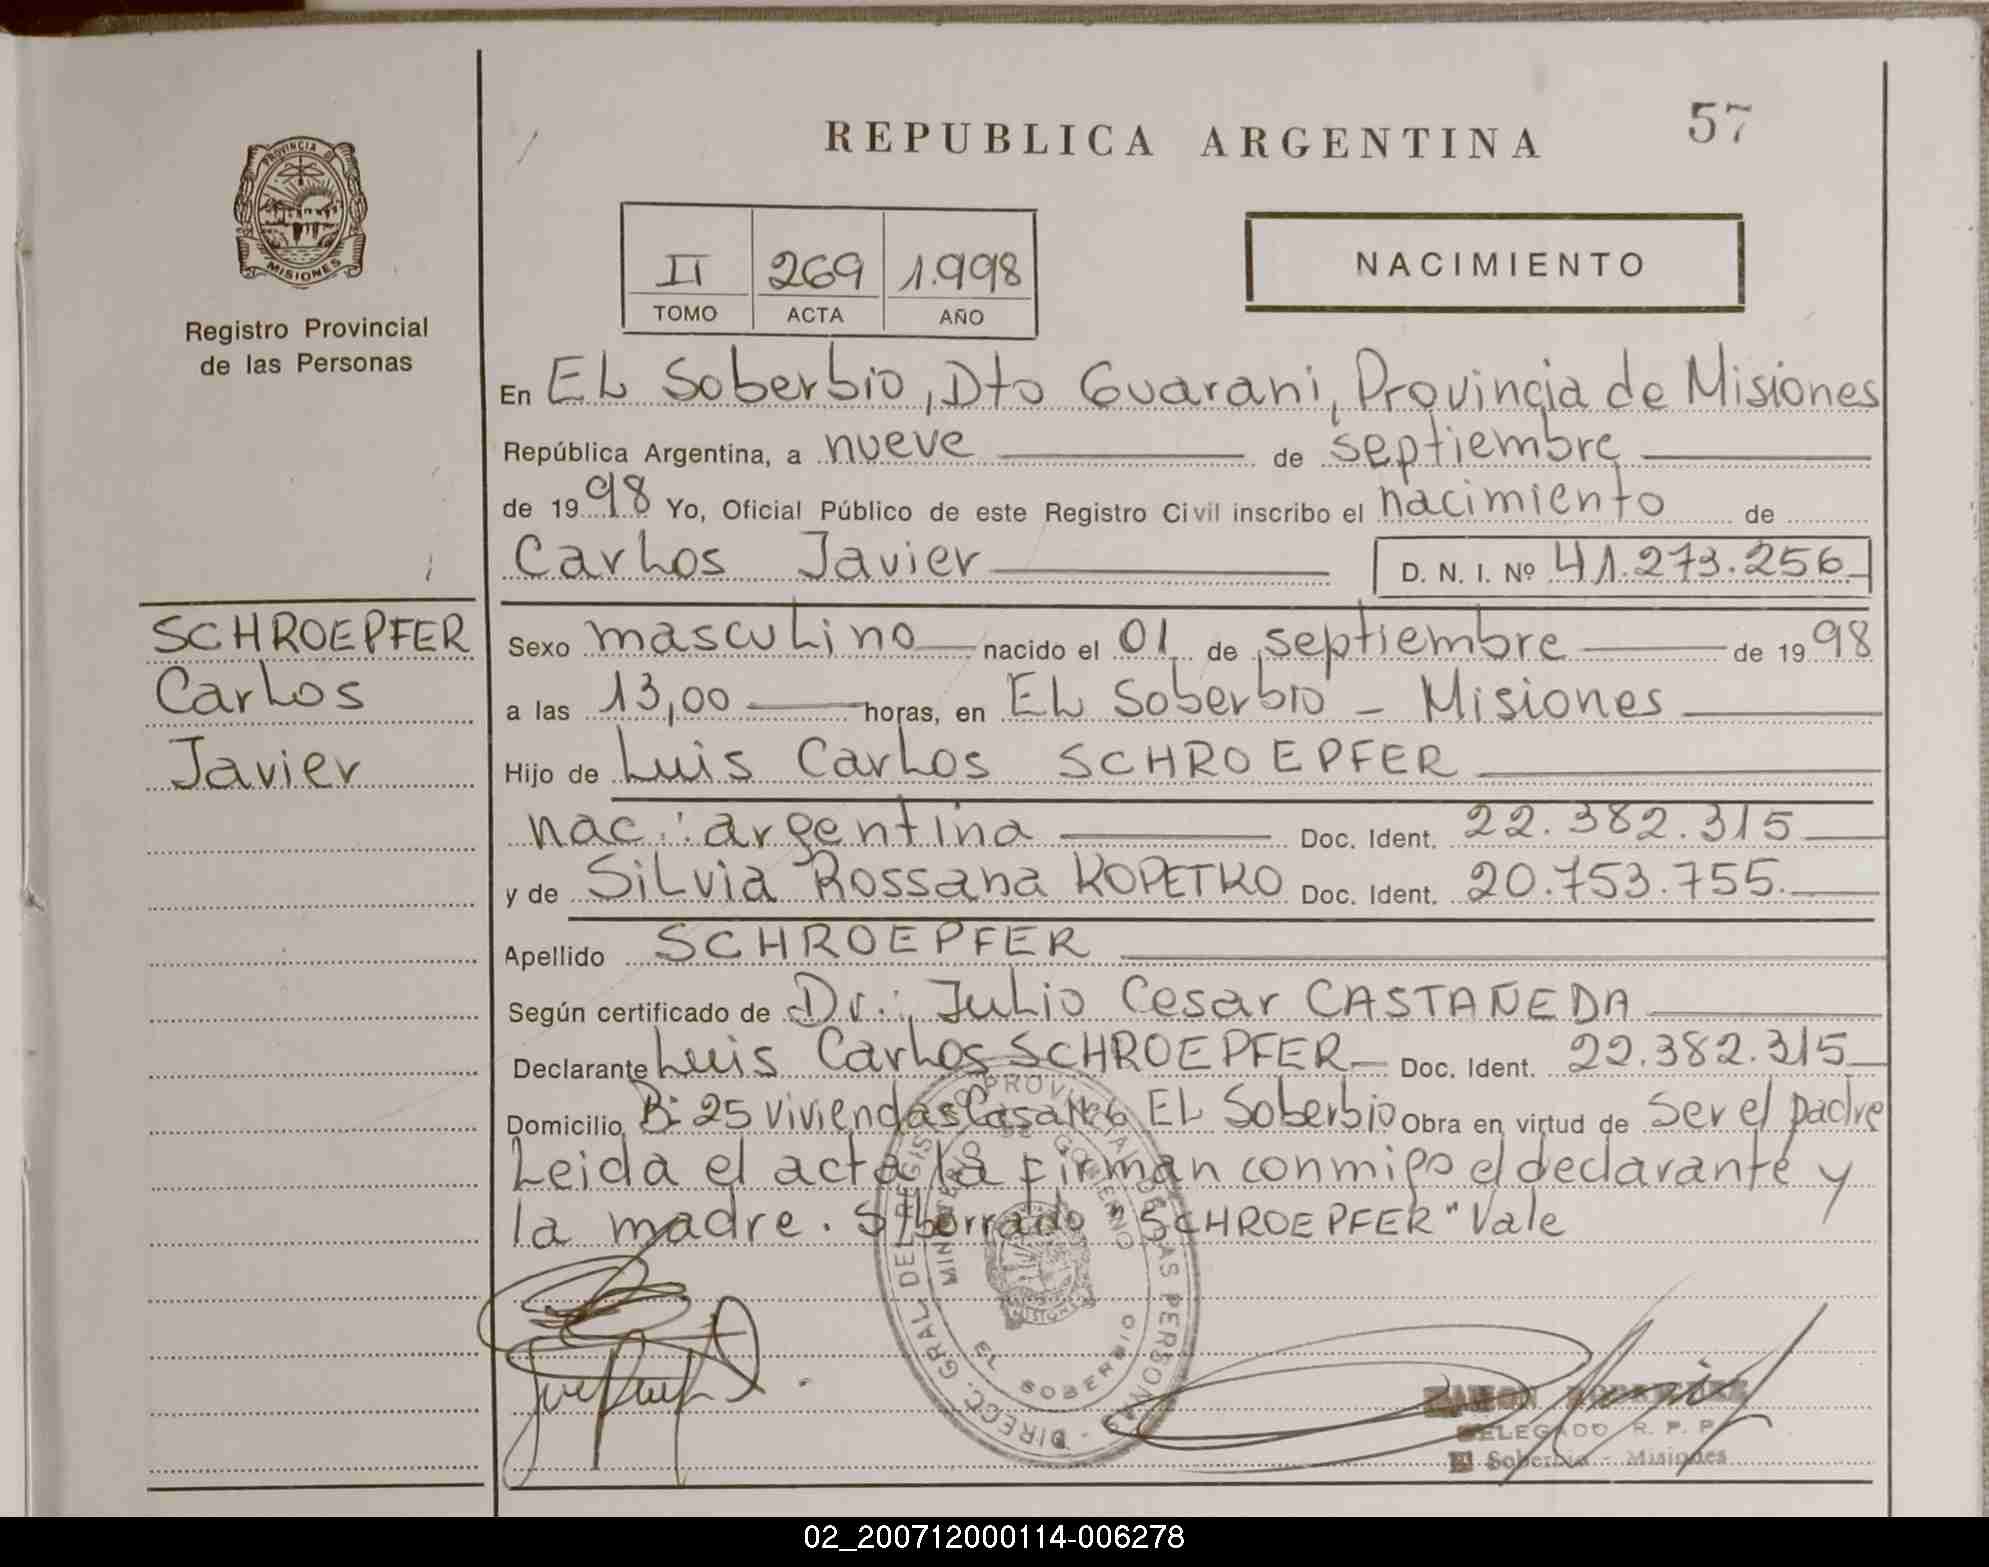 REPUBLICA ARGENTINA
57
PROVINCIA DE
MISIONES
Registro Provincial
de las Personas
II 269 1.998
TOMO ACTA AÑO
NACIMIENTO
En EL Soberbio, Dto Guarani, Provincia de Misiones
República Argentina, a nueve de septiembre
de 1998 Yo, Oficial Público de este Registro Civil inscribo el nacimiento de
Carlos Javier D. N. I. Nº 41.273.256
SCHROEPFER
Carlos
Javier
Sexo masculino nacido el 01 de septiembre de 1998
a las 13,00 horas, en EL Soberbio - Misiones
Hijo de Luis Carlos SCHROEPFER
nac.: argentina Doc. Ident. 22.382.315
y de Silvia Rossana KOPETKO Doc. Ident. 20.753.755.
Apellido SCHROEPFER
Según certificado de Dr.: Julio Cesar CASTAÑEDA
Declarante Luis Carlos SCHROEPFER Doc. Ident. 22.382.315
Domicilio B: 25 viviendas Casa Nº6 EL Soberbio Obra en virtud de Ser el padre
Leida el acta la firman conmigo el declarante y
la madre. S/borrado "SCHROEPFER" Vale
DIRECC. GRAL DEL REGISTRO PROVINCIAL DE LAS PERSONAS
MINISTERIO DE GOBIERNO
MISIONES
EL SOBERBIO
DELEGADO R. P. P.
El Soberbio - Misiones
02_200712000114-006278